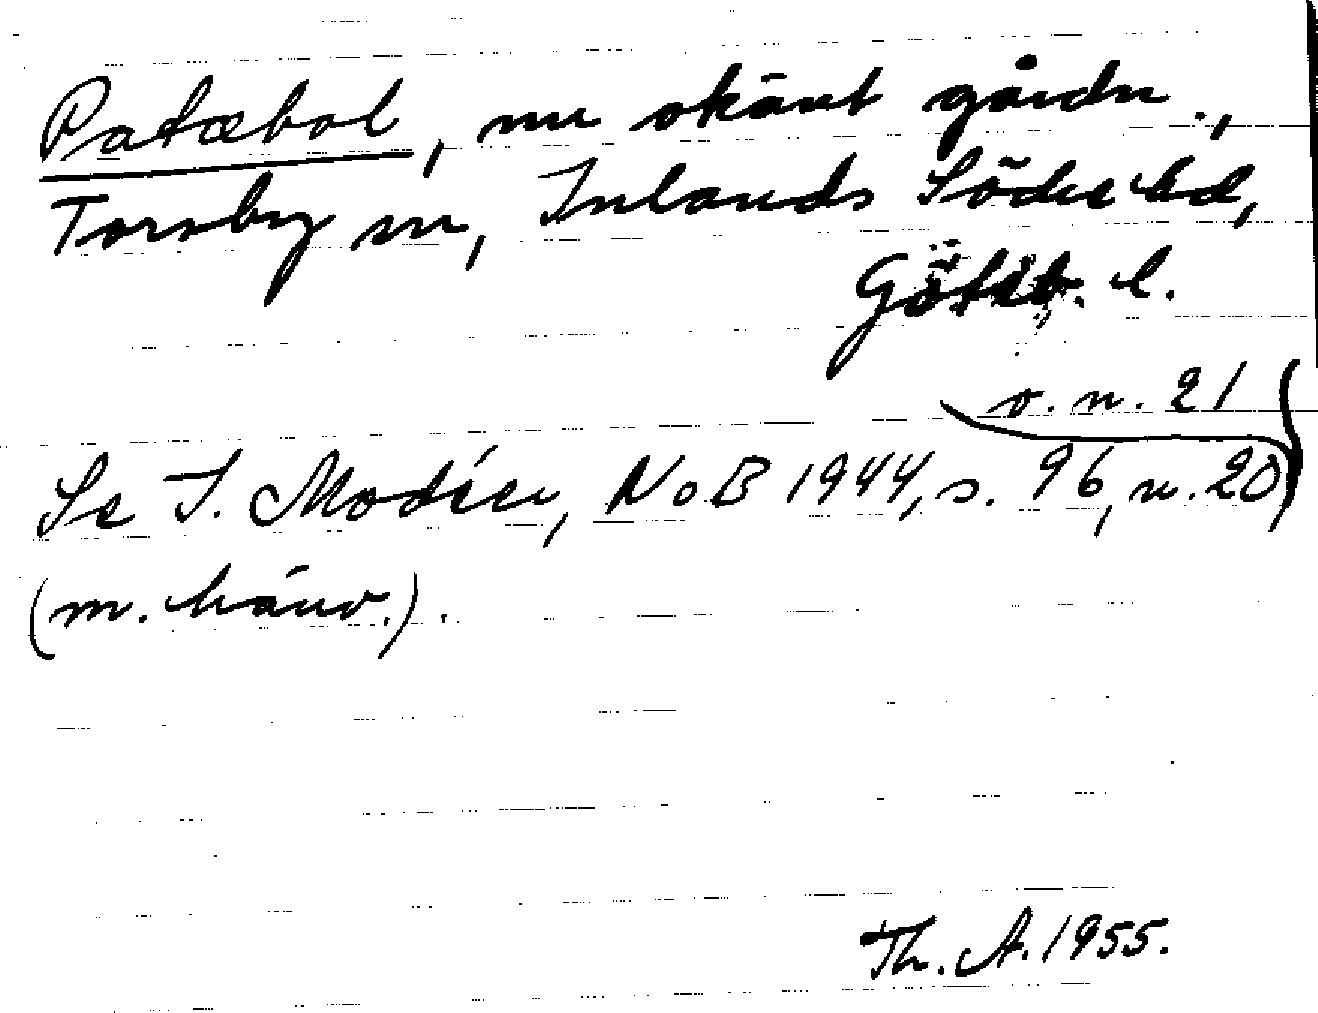 Patæbol, nu okänt gårdn.,
Torsby sn, Inlands Södre hd,
Götab. l.
o. n. 21
Se I. Modéer, NoB 1944, s. 96, n. 20
(m. hänv.).
Th. A. 1955.